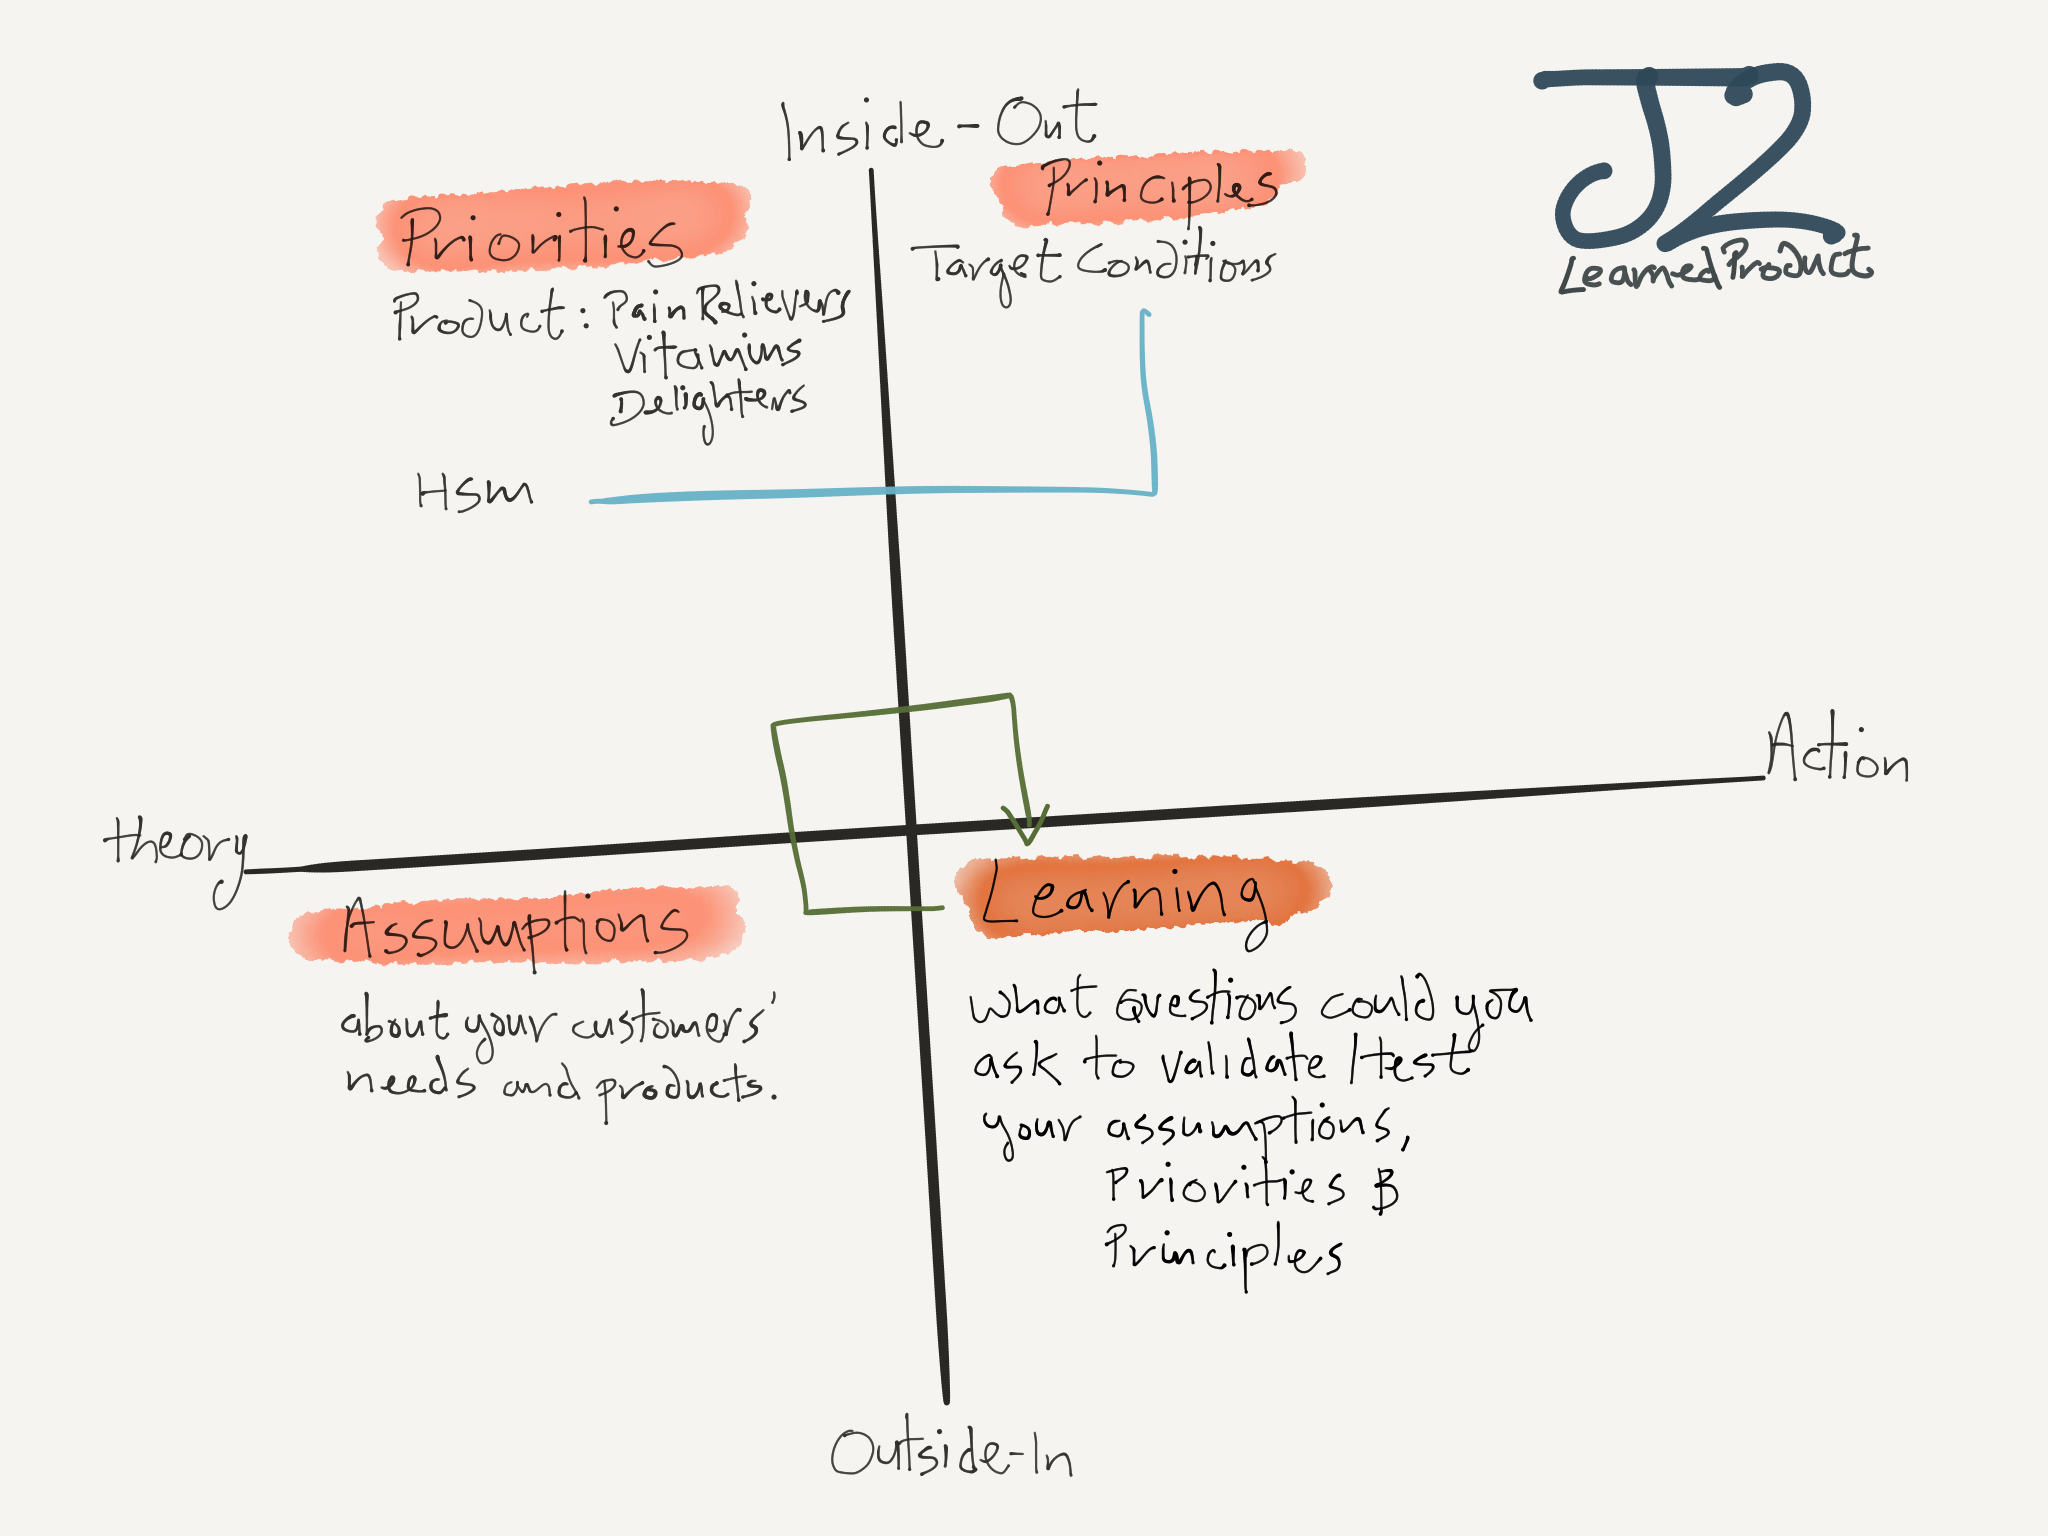 Inside-Out
J2
LearnedProduct
Priorities
Product: Pain Relievers
Vitamins
Delighters
Hsm
Principles
Target Conditions
theory
Action
Assumptions
about your customers'
needs and products.
Learning
what questions could you
ask to validate/test
your assumptions,
Priorities &
Principles
Outside-In